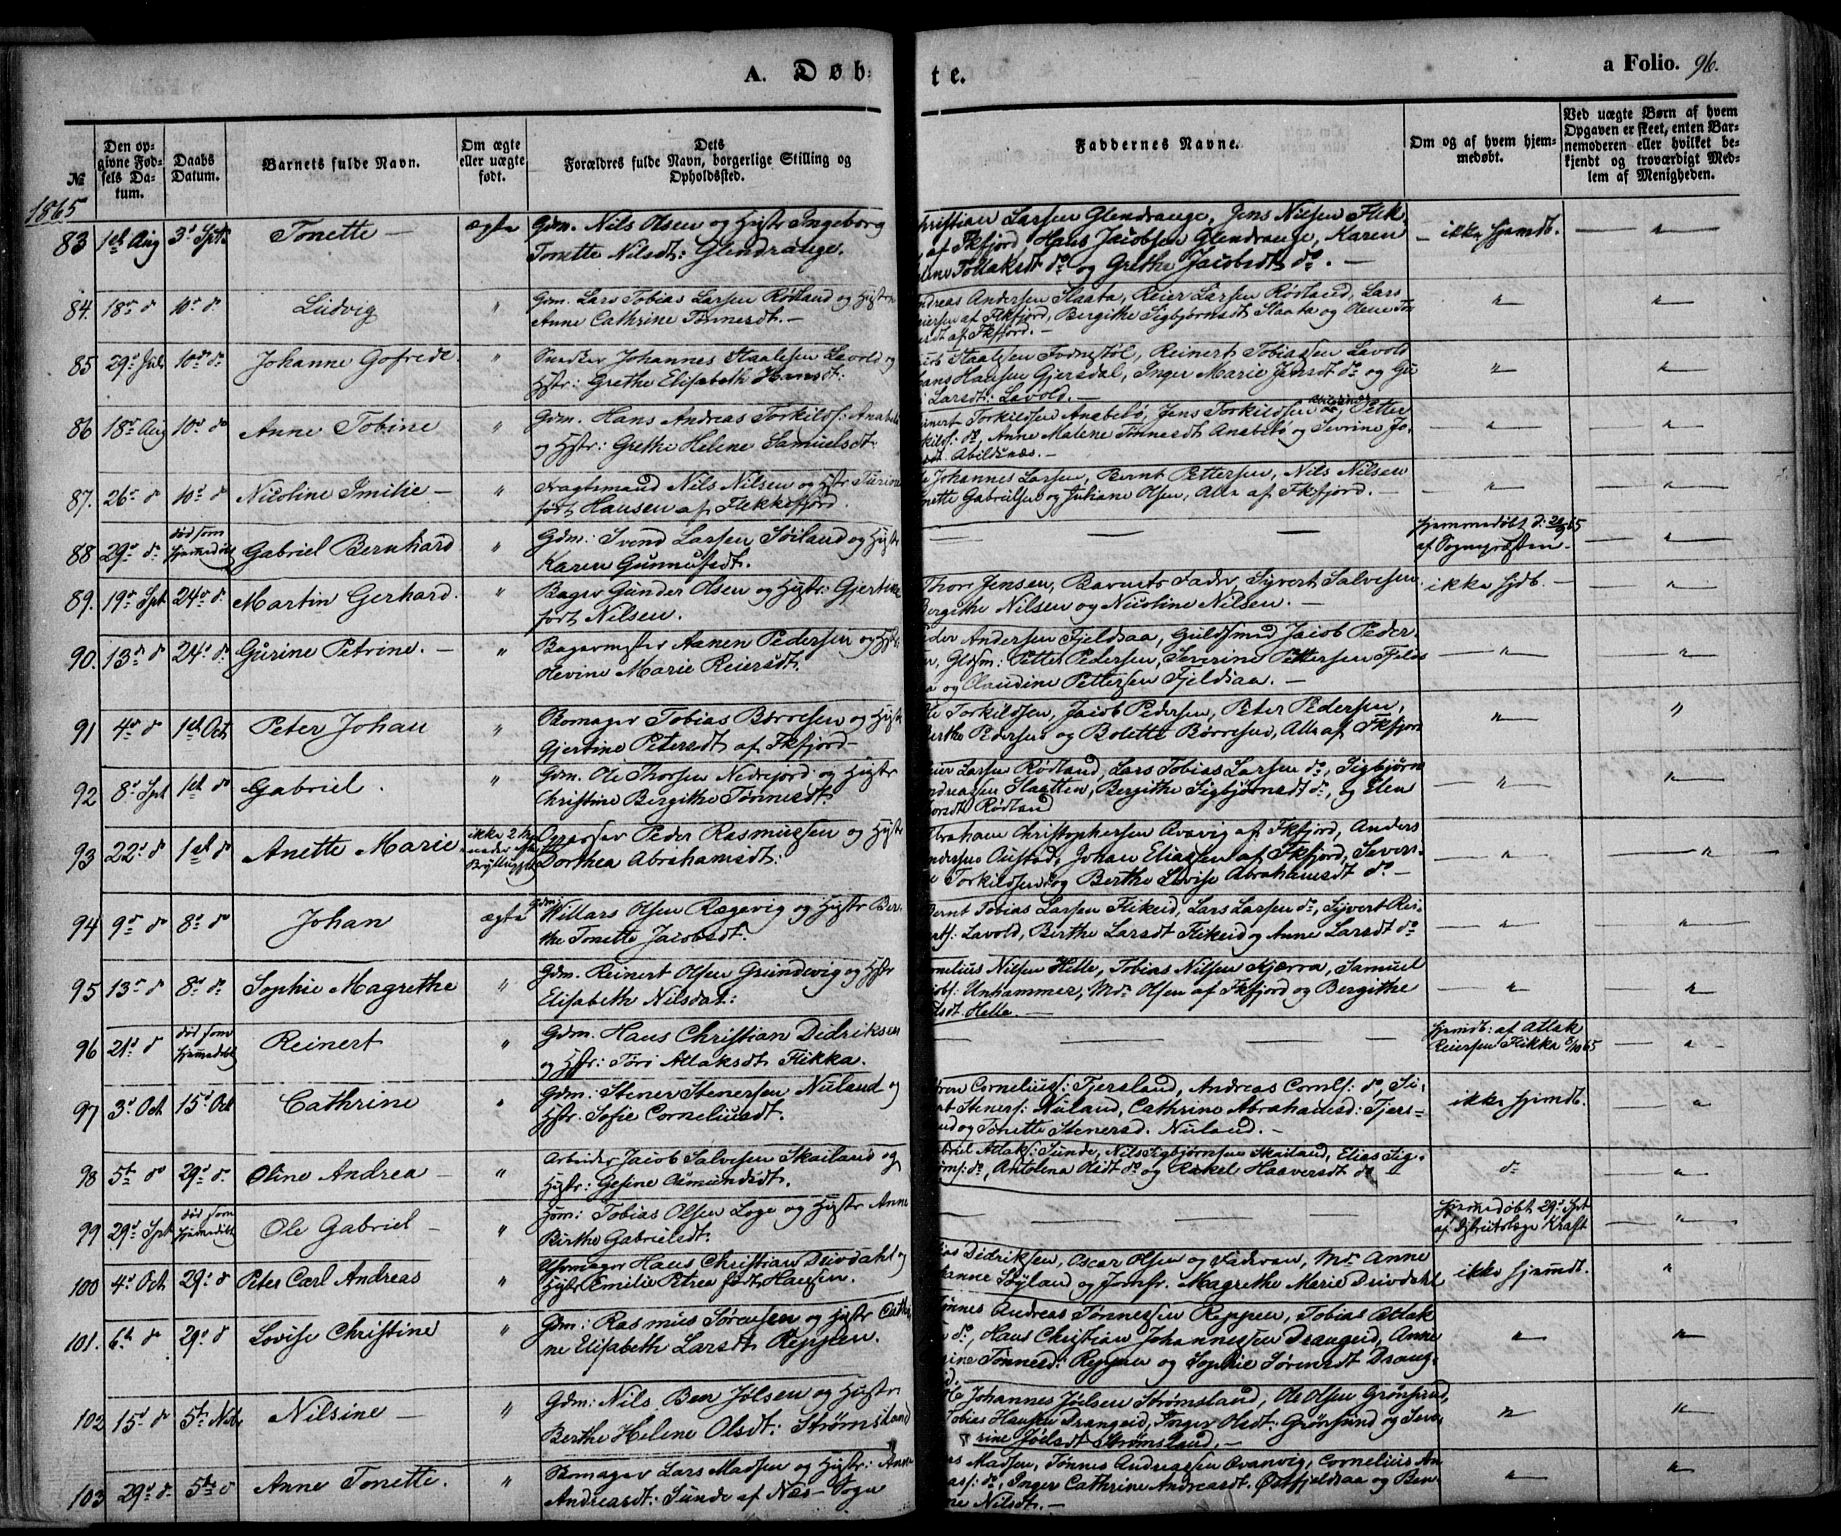 A. Døb- te. a Folio. 96.
№
Den op-
givne Fød-
sels Da-
tum.
Daabs
Datum.
Barnets fulde Navn.
Om ægte
eller uægte
født.
Dets
Forældres fulde Navn, borgerlige Stilling og
Opholdssted.
Faddernes Navne.
Om og af hvem hjem-
medøbt.
Ved uægte Børn af hvem
Opgaven er skeet, enten Bar-
nemoderen eller hvilket be-
kjendt og troværdigt Med-
lem af Menigheden.
1865
83 1ste Aug 3d Sept Tonette — ægte Gdm. Nils Olsen og Hstr Ingeborg
Tonette Nilsdt: Glendrange.
Christian Larsen Glendrange, Jens Nilsen Flik
af Fkfjord, Hans Jacobsen Glendrange, Karen
Tollaksdt do og Grethe Jacobsdt do. —
— ikke hjemdb. — " —
84. 18de d 10de d. Ludvig " Gdm. Lars Tobias Larsen Rødland og Hstr
Anne Cathrine Tønnesdt. —
Andreas Andersen Slaata, Reier Larsen Rødland, Lars
Reiersen af Fkfjord, Bergithe Sigbjørnsdt Slaata og Olene
af Fkfjord. —
" — " —
85 29de Juli 10de d. Johanne Gofrede " Snedker Johannes Staalesen Lavold og
Hstr: Grethe Elisabeth Hansdt:
Staalesen Fodnestøl, Reinert Tobiassen Lavold
Hans Hansen Gjersdal, Inger Marie Jensdt do og
Larsdt: Lavold. —
" — " —
86 18de Aug 10de d Anne Tobine " Gdm. Hans Andreas Torkilds: Anabelø
og Hstr: Grethe Helene Samuelsdt.
Reinert Torkildsen Anabelø, Jens Torkildsen Abildsnæs, Petter
Torkilds: do, Anne Malene Tønnesdt Anabelø og Severine
Abildsnæs. —
— " — — " —
87. 26de d 10de d Nicoline Emilie — " Fragtemand Nils Nilsen og Hstr
født Hansen af Flekkefjord.
Johannes Larsen, Bernt Pettersen, Nils Nilsen
Gabrielsen og Juliane Olsen, Alle af Fkfjord. —
— " — — " —
88 29de d. død som
hjemmedøbt Gabriel Bernhard " Gdm: Svend Larsen Søiland og Hstr
Karen Gunnufsdt.
— — — —
Hjemmedøbt d:
af Sognepræsten — — " —
89. 19de Spt 24de d Martin Gerhard. " Bager Gunder Olsen og Hstr: Gjertine
født Nilsen.
Thor Jensen, Barnets Fader, Syvert Salvesen
Bergithe Nilsen og Nicoline Nilsen. —
ikke hjdb. — — " —
90. 13de d 24de d. Gurine Petrine. — " Bagermester Aanen Pedersen og Hstr
Olevine Marie Reiersdt.
Peder Andersen Fjeldsaa, Guldsmed Jacob Peder-
sen, Gldsm: Petter Pedersen, Severine Pettersen Fjeld
saa og Claudine Pettersen Fjeldsaa. —
— " — — " —
91 4de d 1ste Oct Peter Johan " Skomager Tobias Børresen og Hstr
Gjertine Petersdt af Fkfjord —
Torkildsen, Jacob Pedersen, Peter Pedersen,
Berthe Pedersen og Bolette Børresen, Alle af Fkfjord
— " — "
92 8de Spt 1ste d Gabriel. " Gdm. Ole Thorsen Nedrefjord og Hstr
Christine Bergithe Tønnesdt
Reier Larsen Rødland, Lars Tobias Larsen do, Sigbjørn
Andreasen Slaatten, Bergithe Sigbjørnsdt do, og Elen
Rødland
— " — — " —
93 22de d 1ste d Anette Marie ikke 2 Maa-
neder efter
Brylluppet Peder Rasmussen og Hstr
Dorthea Abrahamsdt:
Abraham Christophersen Avavig af Fkfjord, Anders
Andersen Austad, Johan Eliassen af Fkfjord, Sever-
Torkildsen og Berthe Lovise Abrahamsdt do —
— " — — " —
94 9de d 8de d Johan ægte Gdm: Willars Olsen Rægevig og Hstr Ber-
the Tonette Jacobsdt.
Bernt Tobias Larsen Flikeid, Lars Larsen do, Syvert Rei-
nerts: Lavold, Berthe Larsdt Flikeid og Anne Larsdt do
— " — — " —
95 13de d 8de d. Sophie Magrethe " Gdm. Reinert Olsen Grundevig og Hstr
Elisabeth Nilsdat:
Cornelius Nilsen Helle, Tobias Nilsen Kjærra, Samuel
Unhammer, Md. Olsen af Fkfjord og Bergithe
Helle —
— " — — " —
96 21de d død som
hjemmedøbt Reinert " Gdm. Hans Christian Didriksen
og Hstr: Tøri Atlaksdt Flikka.
— — — —
hjemdb: af Atlak
Reiersen Flikka 6/10 65 — " —
97 3de Oct 15de Oct Cathrine " Gdm: Stener Stenersen Nuland og
Hstr: Sofie Corneliusdt.
Cornelius: Fjersland, Andreas Cornls: do, Si-
Steners: Nuland, Cathrine Abrahamsd: Fjers-
land og Tonette Stenersd. Nuland. —
ikke hjemdb. — " —
98 5te d 29de d. Oline Andrea — " Arbeider Jacob Salvesen Skailand og
Hstr: Gesine Asmundsdt.
Gabriel Atlaks: Sunde, Nils Sigbjørnsen Skailand, Elias Sig-
bjørns: do, Antolena do og Rakel Haaversdt do
do — " —
99 29de Spt død som
hjemmedøbt Ole Gabriel — " Huusm: Tobias Olsen Loge og Hstr Anne
Birthe Gabrielsdt.
— — — —
Hjemmedøbt 29de Spt
af Distriktslæge Kraft — " —
100 4de Oct 29de d Peter Carl Andreas " Uhrmager Hans Christian Duvdahl og
Hstr Emilie Petrea født Hansen.
Didriksen, Oscar Olsen og Faderen, Md. Anne
Søyland og Jomfr. Magrethe Marie Duvdahl
ikke hjemdt. "
101. 6te d 29de d Lovise Christine " Gdm: Rasmus Sørensen og Hstr Cathri
ne Elisabeth Larsdt Reppen.
Tønnes Andreas Tønnessen Reppen, Tobias Atlak
do, Hans Christian Johannessen Drangeid, Anne
Tønnesd: Reppen og Sophie Sørensdt Drang-
— " — — " —
102 15de d 5te Nvbr Nilsine — " Gdm: Nils Beer Jølsen og Hstr
Berthe Helene Olsdt: Strømsland
Johannes Jøelsen Strømsland, Ole Olsen Grønsund,
Tobias Hansen Drangeid, Inger Olsdt: Grønsund og Seve-
rine Jøelsdt Strømsland. —
— " — — " —
103 29de d. 5te d Anne Tonette. " Skomager Lars Madsen og Hstr: Anne
Andreasdt: Sunde af Næs-Sogn
Madsen, Tønnes Andreassen Avanvig, Cornelius An
do, Inger Cathrine Andreasdt. Østfjeldsaa og Ben
Nilsdt. —
— " — — " —